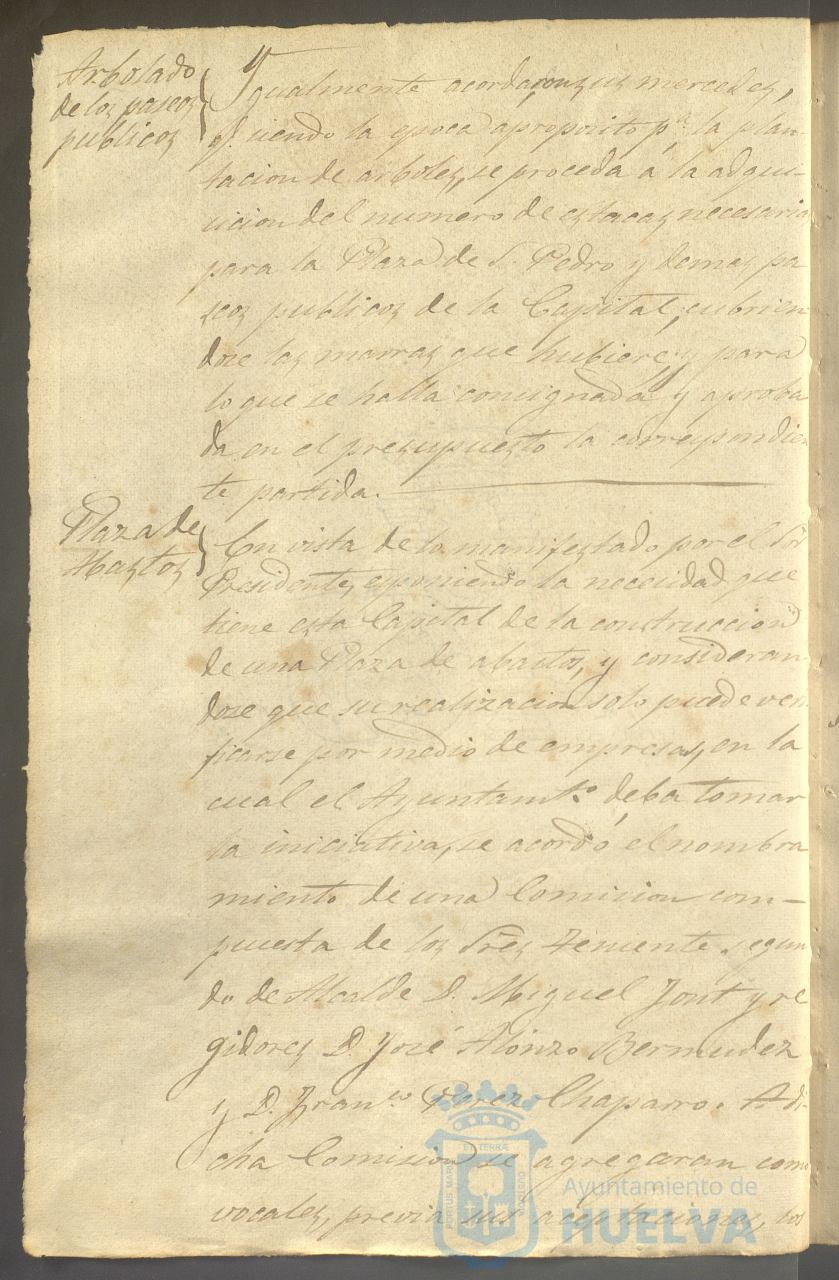 Arbolado
de los paseos
publicos
Ygualmente acordaron sus mercedes,
q.e siendo la epoca aproposito p.a la plan-
tacion de arboles, se proceda á la adqui-
sicion del numero de estacas necesarias
para la Plaza de S. Pedro y demas pa
seos publicos de la Capital, cubrien
dose las marras que hubiere, y para
lo que se halla consignada y aproba
da en el presupuesto la correspondien
te partida.
Plaza de
Abastos
En vista de lo manifestado por el Sor
Presidente, esponiendo la necesidad que
tiene esta Capital de la construccion
de una Plaza de abastos, y consideran-
dose que su realizacion solo puede veri
ficarse por medio de empresas, en la
cual el Ayuntamt.o deba tomar
la iniciativa, se acordó el nombra
miento de una Comision com-
puesta de los Sres. Teniente segun
do de Alcalde D. Miguel Font y re
gidores D. José Alonzo Bermudez
y D. Fran.co Perez Chaparro. A di-
cha Comision se agregaran como
vocales, previa sus aceptaciones, los
PORTUS MARIS
ET TERRÆ
CUSTODIA
Ayuntamiento de
HUELVA